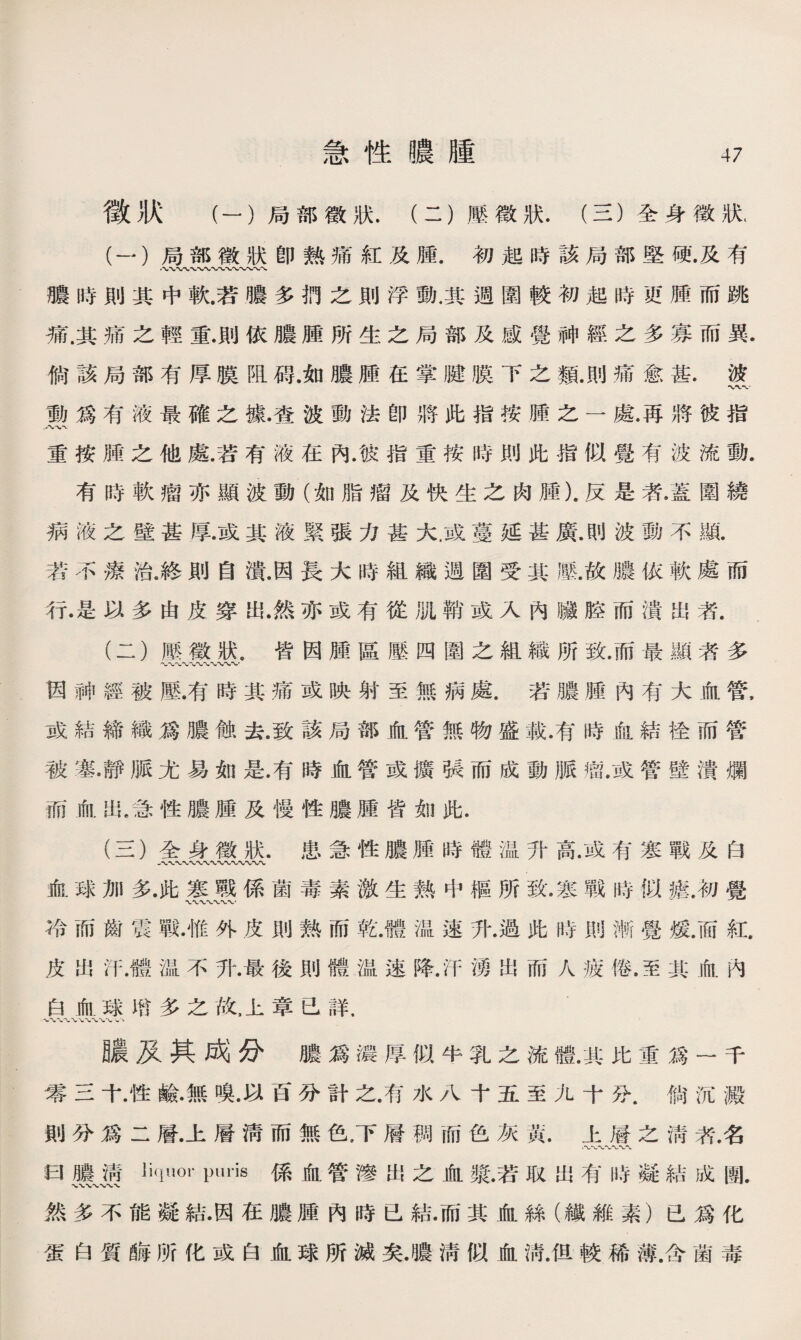 急性膿腫 47
徵狀 (一)局部徵狀. (二)壓徵狀. (三)全身徵狀.
(一)局部徵狀卽熱痛紅及腫. 初起時該局部堅硬.及有
膿時則其中軟.若膿多捫之則浮動.其週圍較初起時更腫而跳
痛.其痛之輕重.則依膿腫所生之局部及感覺神經之多寡而異.
倘該局部有厚膜阻碍.如膿腫在掌腱膜下之類.則痛愈甚. 波
動爲有液最確之據.查波動法卽將此指按腫之一處.再將彼指
重按腫之他處.若有液在內.彼指重按時則此指似覺有波流動.
有時軟瘤亦顯波動(如脂瘤及快生之肉腫).反是者.蓋圍繞
病液之壁甚厚.或其液緊張力甚大.或蔓延甚廣.則波動不顯.
若不療治.終則自潰.因長大時組織週圍受其壓.故膿依軟處而
行.是以多由皮穿出.然亦或有從肌鞘或入內臟腔而潰出者.
(二)壓徵狀. 皆因腫區壓四圍之組織所致.而最顯者多
因神經被壓.有時其痛或映射至無病處. 若膿腫內有大血管,
或結締織爲膿蝕去.致該局部血管無物盛載.有時血結栓而管
被塞.靜脈尤易如是.有時血管或擴張而成動脈瘤.或管壁潰爛
而血出.急性膿腫及慢性膿腫皆如此.
(三)全身徵狀. 患急性膿腫時體温升高.或有寒戰及白
血球加多.此寒戰係菌毒素激生熱中樞所致.寒戰時似瘧.初覺
冷而齒震戰.惟外皮則熱而乾.體温速升.過此時則漸覺煖.面紅.
皮出汗.體温不升.最後則體温速降.汗湧出而人疲倦.至其血內
白血球增多之故,上章已詳.
膿及其成分 膿爲濃厚似牛乳之流體.其比重爲一千
零三十.性鹼.無嗅.以百分計之.有水八十五至九十分. 倘沉澱
則分爲二層.上層淸而無色.下層稠而色灰黃. 上層之淸者.名
曰膿淸 liquor puris 係血管滲出之血漿.若取出有時凝結成團.
然多不能凝結.因在膿腫內時已結.而其血絲(纖維素)已爲化
蛋白質酶所化或白血球所滅矣.膿淸似血淸.但較稀薄.含菌毒